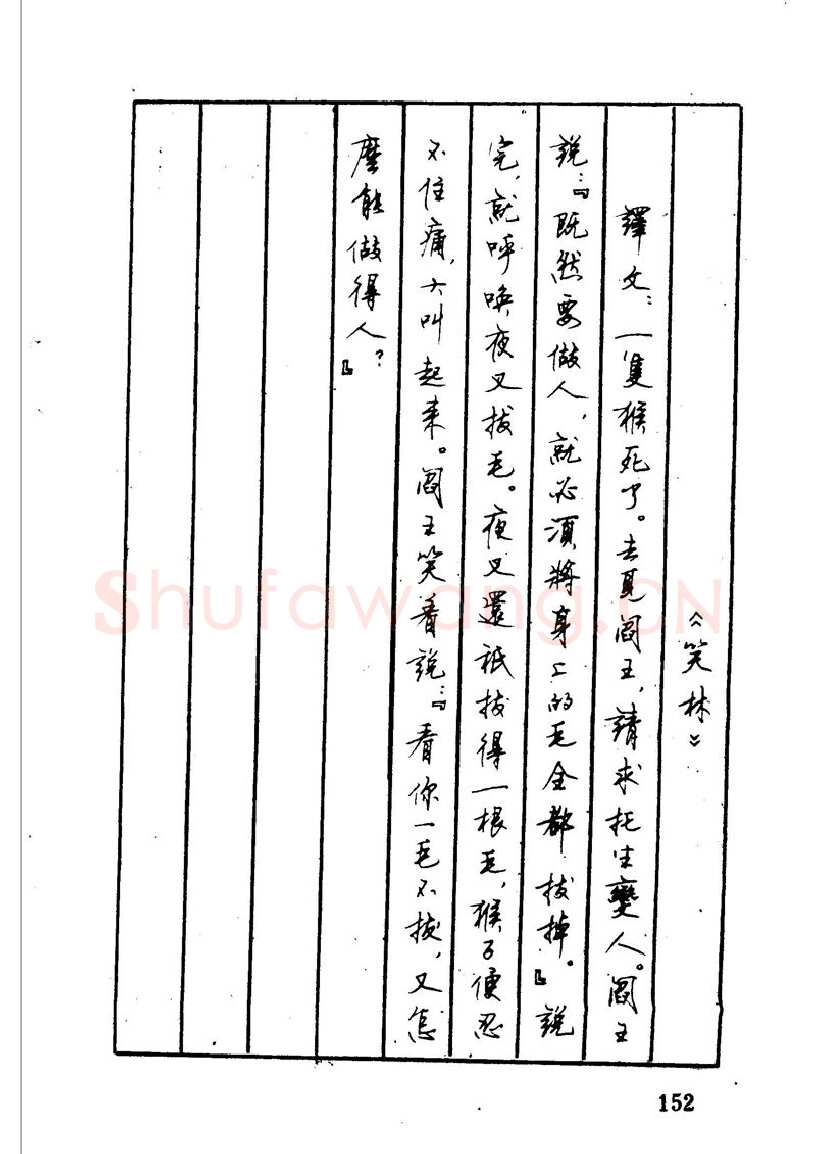 《笑林》
譯文：一隻猴死了。去見閻王，請求托生變人。閻王
說：『既然要做人，就必須將身上的毛全都拔掉。』說
完，就呼喚夜叉拔毛。夜叉還衹拔得一根毛，猴子便忍
不住痛，大叫起来。閻王笑着說：『看你一毛不拔，又怎
麼能做得人？』
152
Shufawang.CN